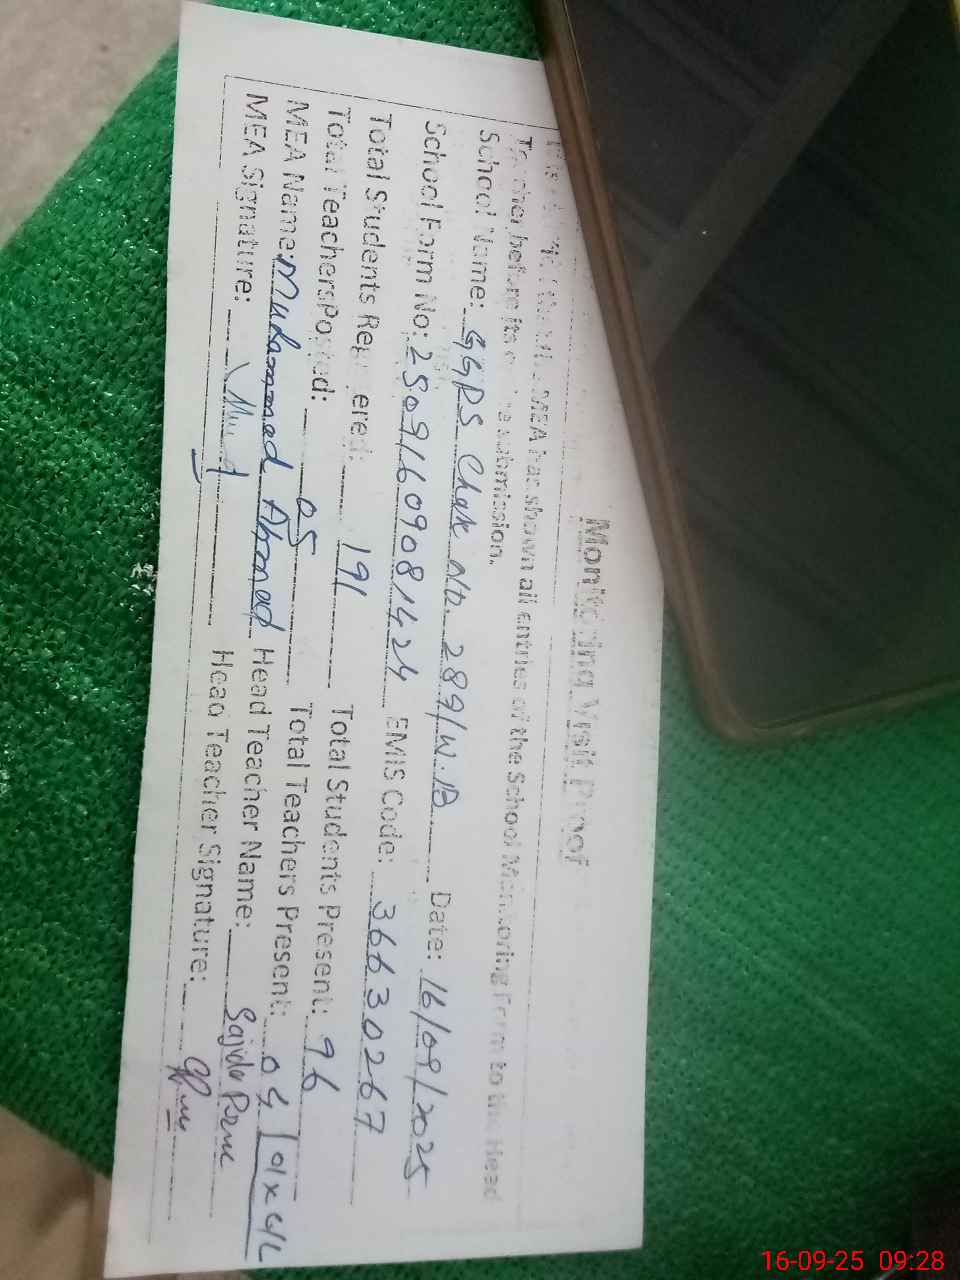 Monitoring Visit Proof
MEA has shown all entries of the School Monitoring Form to the Head
Teacher before its submission.
School Name: GGPS Chak No. 289/W.B Date: 16/09/2025
School Form No: 25091609081424 EMIS Code: 36630267
Total Students Registered: 191 Total Students Present: 96
Total Teachers Posted: 05 Total Teachers Present: 04 | 01 x C/L
MEA Name: Muhammad Ahmad Head Teacher Name: Sajida
MEA Signature: Head Teacher Signature:
16-09-25 09:28